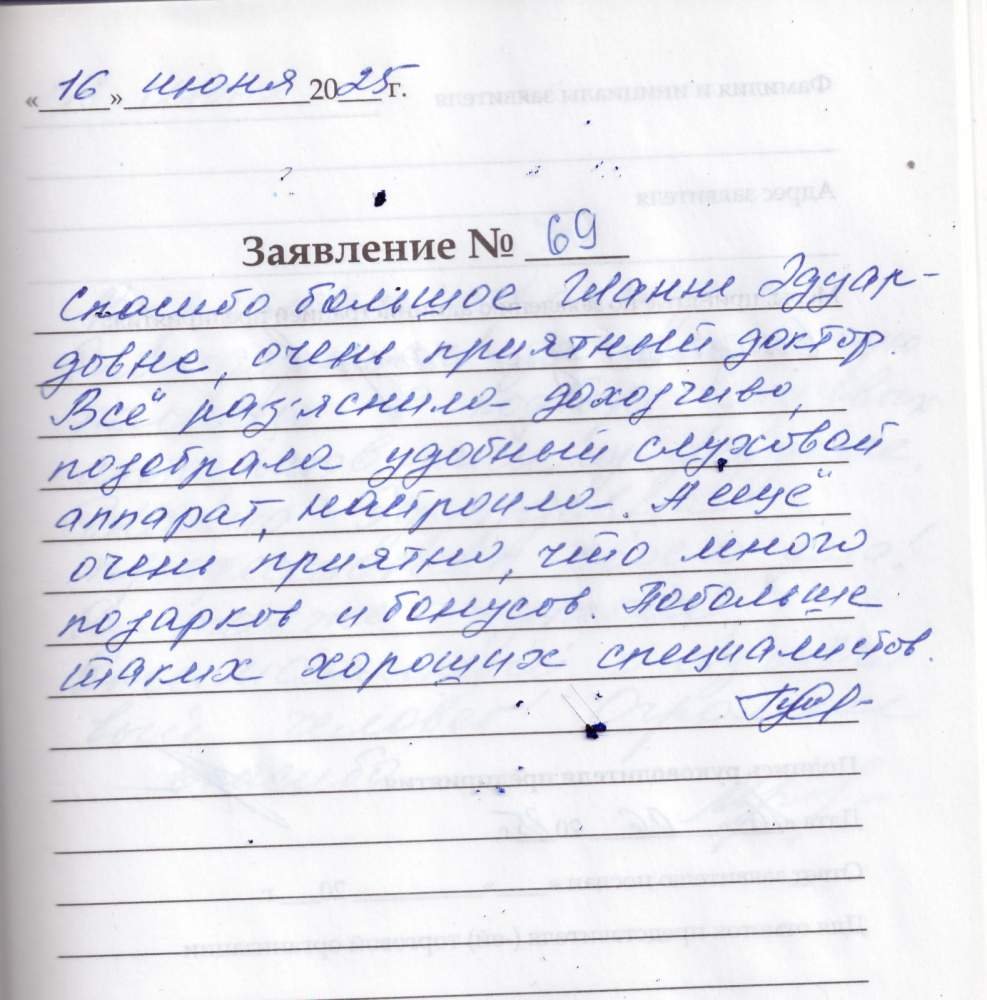 « 16 » июня 2025 г.
Заявление № 69
Спасибо большое Жанне Эдуар-
довне, очень приятный доктор.
Всё раз'яснила доходчиво,
подобрала удобный слуховой
аппарат, настроила. А ещё
очень приятно, что много
подарков и бонусов. Побольше
таких хороших специалистов.